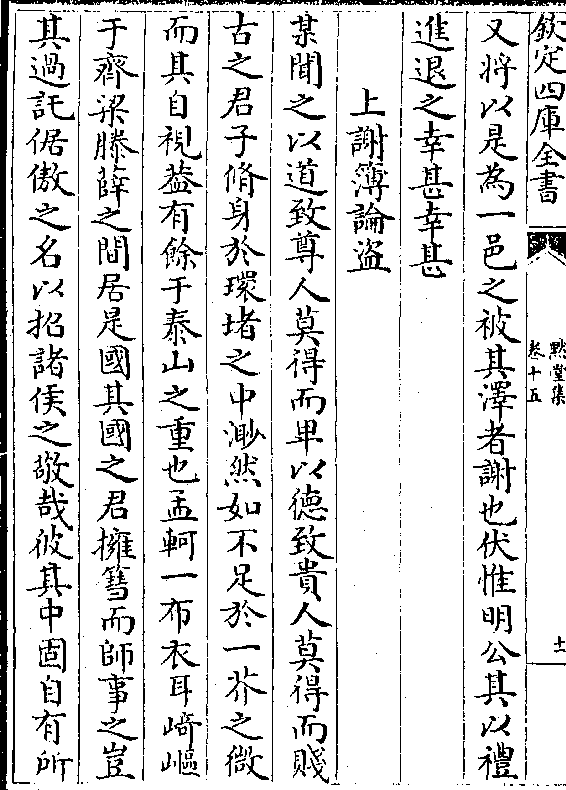 欽定四庫全書
默堂集
卷十五
十一
又將以是為一邑之被其澤者謝也伏惟明公其以禮
進退之幸甚幸甚
上謝簿論盜
某聞之以道致尊人莫得而卑以德致貴人莫得而賤
古之君子脩身於環堵之中渺然如不足於一芥之微
而其自視益有餘于泰山之重也孟軻一布衣耳﨑嶇
于齊梁滕薛之間居是國其國之君擁篲而師事之豈
其過託倨傲之名以招諸侯之敬哉彼其中固自有所